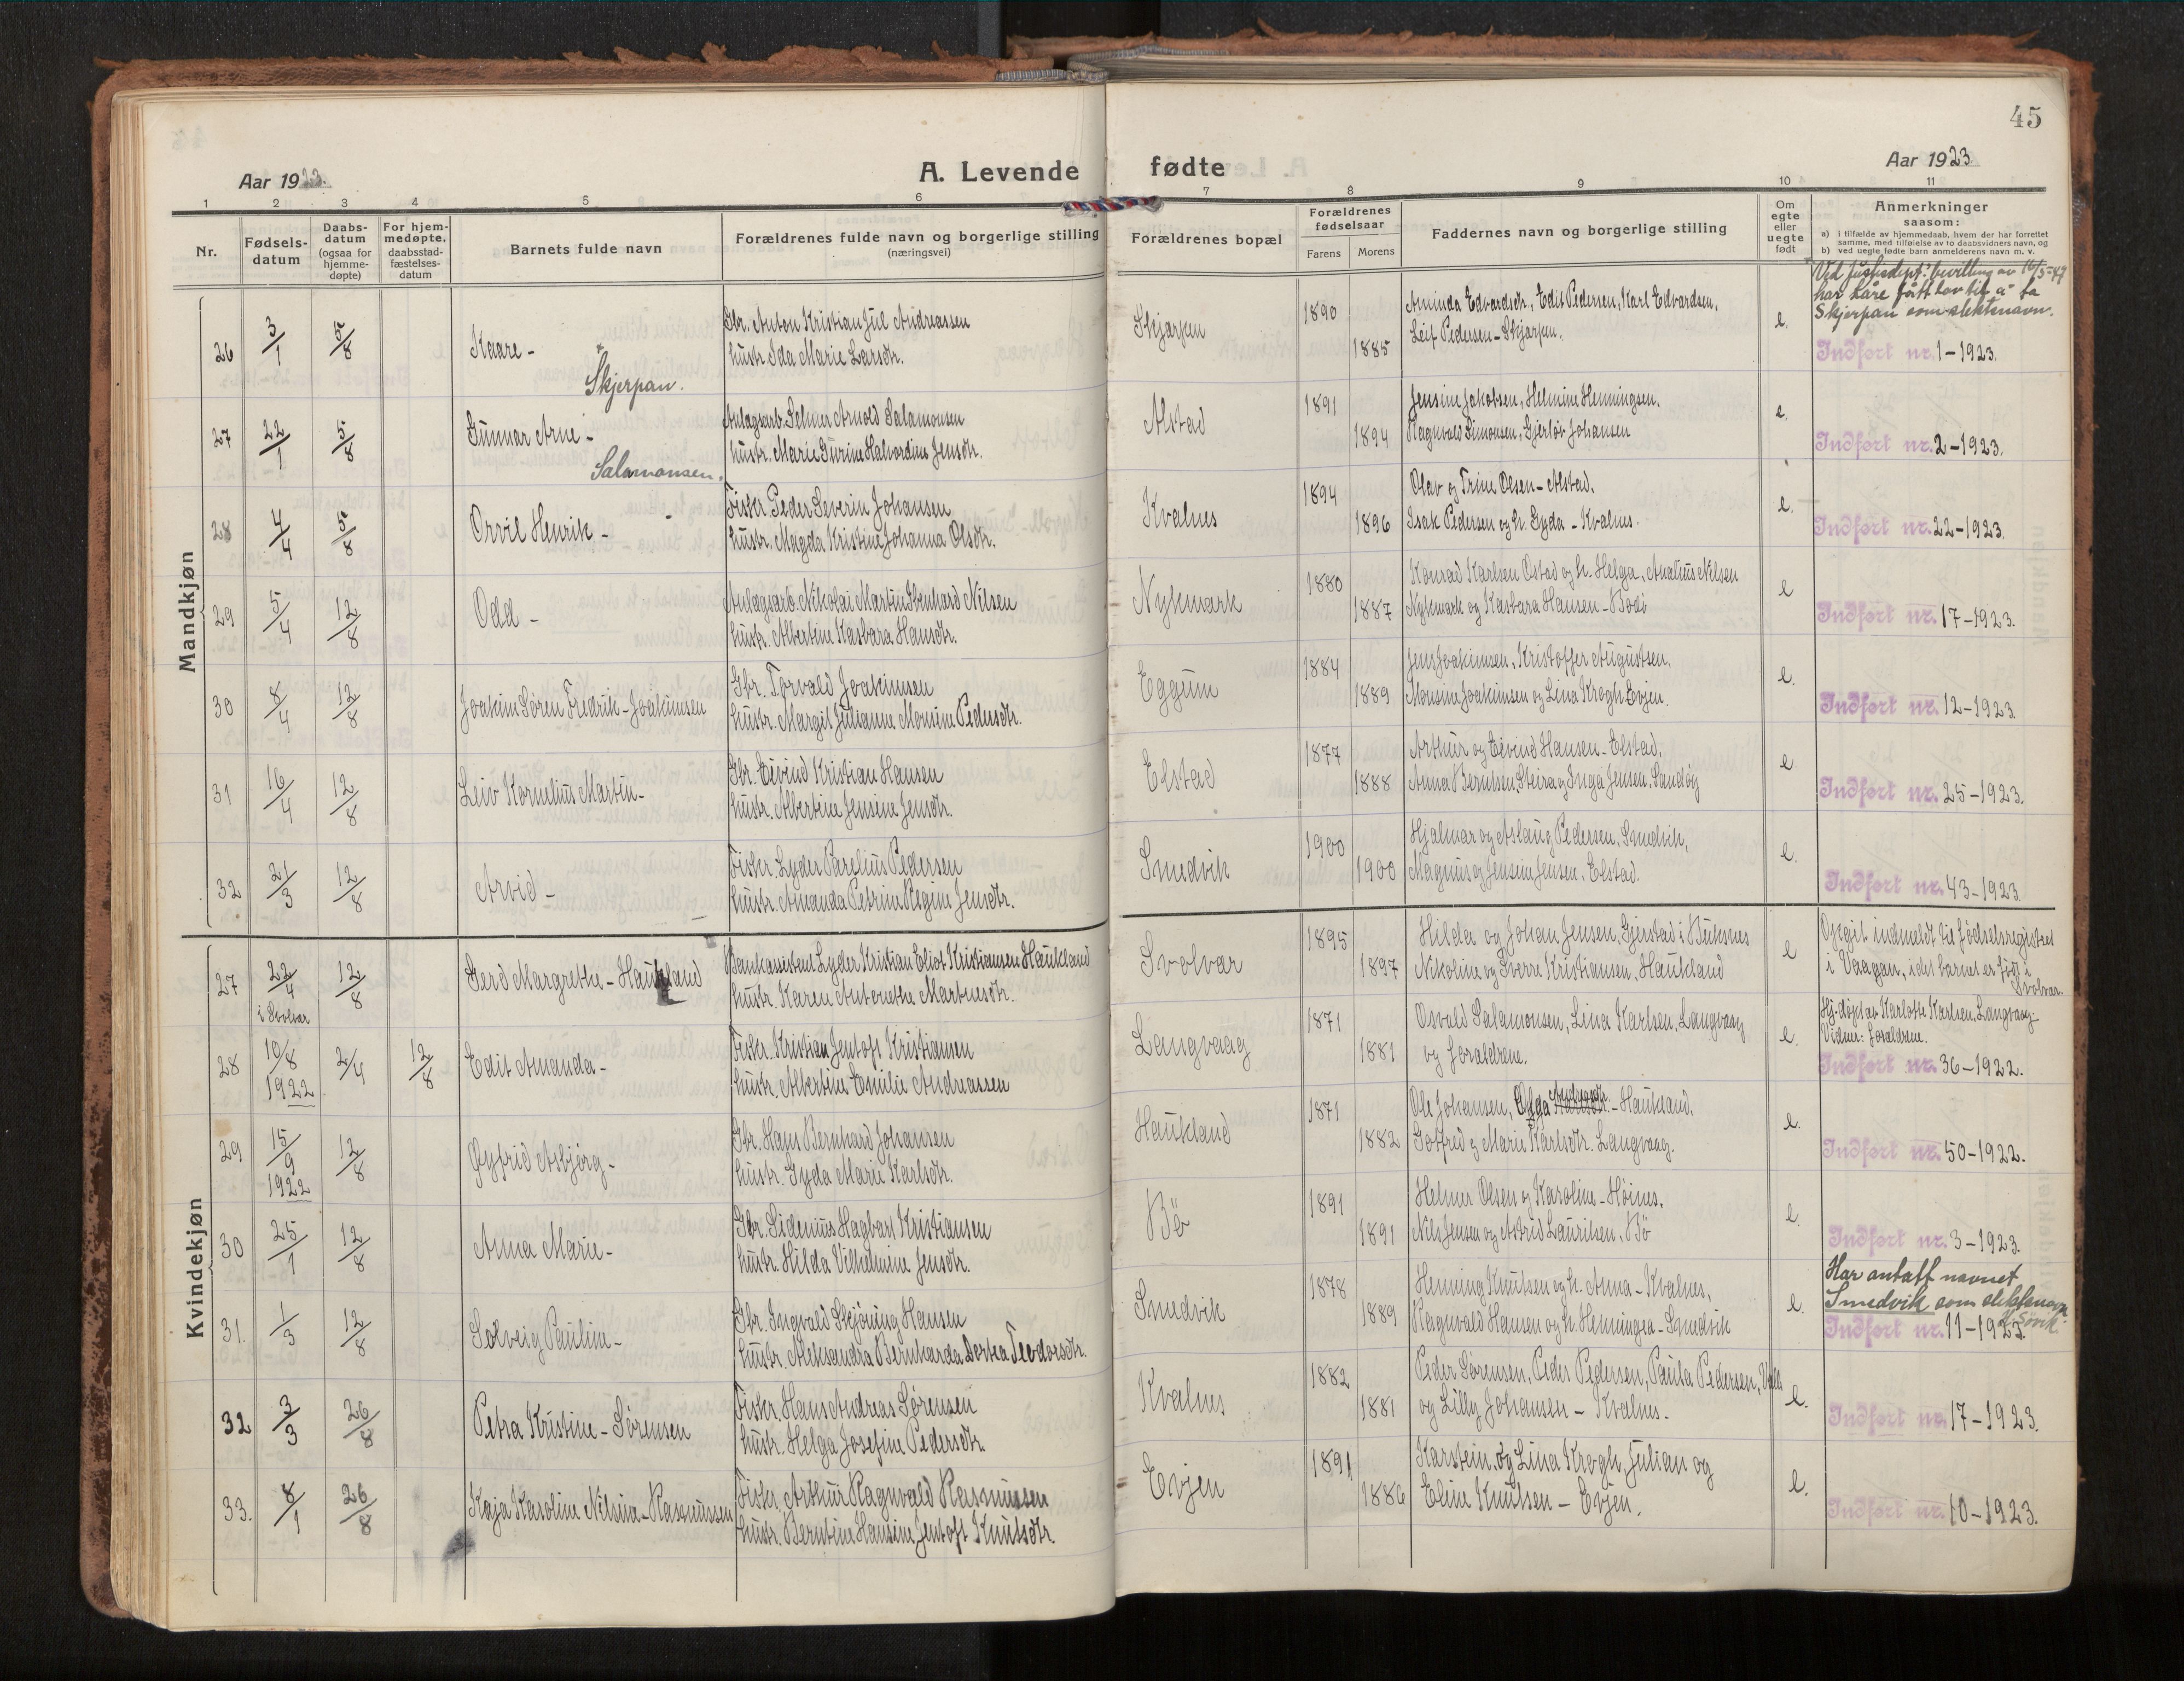 45
Aar 1923.
A. Levende fødte
Aar 1923
1 2 3 4 5 6 7 8 9 10 11
Nr.
Fødsels-
datum
Daabs-
datum
(ogsaa for
hjemme-
døpte)
For hjem-
medøpte,
daabsstad-
fæstelses-
datum
Barnets fulde navn
Forældrenes fulde navn og borgerlige stilling
(næringsvei)
Forældrenes bopæl
Forældrenes
fødselsaar
Farens Morens
Faddernes navn og borgerlige stilling
Om
egte
eller
uegte
født
Anmerkninger
saasom:
a) i tilfælde av hjemmedaab, hvem der har forrettet
samme, med tilføielse av to daabsvidners navn, og
b) ved uegte fødte barn anmelderens navn m. v.
Mandkjøn
26 3/1 5/8 Kaare - Skjerpan.
Gbr. Anton Kristian Jul Andreassen
hustr. Ida Marie Larsdtr.
Skjarpen 1890 1885
Aminda Edvardsdtr., Edit Pedersen, Karl Edvardsen,
Leif Pedersen - Skjarpen.
e.
Ved Justisdept.' bevilling av 16/5-49
har Kåre fått lov til å ta
Skjerpan som slektsnavn.
Indført nr. 1-1923.
27 22/1 5/8 Gunnar Arne - Salamonsen.
Anlagsarb. Selmer Arnold Salamonsen
hustr. Marie Gurine Halvordine Jensdtr.
Alstad 1891 1894
Jensine Jakobsen, Helmine Henningsen,
Ragnvald Simonsen, Gjerløv Johansen
e.
Indført nr. 2-1923.
28 4/4 5/8 Orvil Henrik -
Fisker Peder Severin Johansen
hustr. Magda Kristine Johanna Olsdtr.
Kvalnes 1894 1896
Olav og Trine Olsen - Alstad,
Isak Pedersen og h. Gyda - Kvalnes.
e.
Indført nr. 22-1923.
29 5/4 12/8 Odd -
Anlagsarb. Nikolai Martin Ebenhard Nilsen
hustr. Albertine Kasbara Hansdtr.
Nykmark 1880 1887
Konrad Karlsen Ostad og h. Helga, Analius Nilsen
Nykmark og Kasbara Hansen - Bodø
e
Indført nr. 17-1923.
30 8/4 12/8 Joakim Søren Fredrik - Joakimsen
Gbr. Torvald Joakimsen
hustr. Margit Julianne Monsine Pedersdtr.
Eggum 1884 1889
Jens Joakimsen, Kristoffer Augustsen,
Monsine Joakimsen og Lina Krogh Evjen.
e.
Indført nr. 12-1923
31 16/4 12/8 Leiv Kornelius Martin -
Gbr. Eivind Kristian Hansen
hustr. Albertine Jensine Jensdtr.
Elstad 1877 1888
Arthur og Eivind Hansen - Elstad,
Anna Berntsen, Steira og Inga Jensen, Sandøy
e
Indført nr. 25-1923.
32 21/3 12/8 Arvid -
Fisker Lyder Parelius Pedersen
hustr. Amanda Petrine Regine Jensdtr.
Smedvik 1900 1900
Hjalmar og Aslaug Pedersen, Smedvik,
Magnus og Jensine Jensen, Elstad.
e.
Indført nr. 43-1923.
Kvindekjøn
27 22/4 i Svolvær 12/8 Gerd Margrethe - Haukland
Bankassistent Lyder Kristian Eliot Kristiansen Haukland
hustr. Karen Antonette Martinsdtr.
Svolvar 1895 1897
Hilda og Johan Jensen, Gjerstad i Buksnes
Nikoline og Sverre Kristiansen, Haukland
e
Opgit indmeldt til fødselsregistret
i Vaagan, idet barnet er født i
Svolvær.
28 10/8 1922 2/4 12/8 Edit Amanda -
Fisker Kristian Jentoft Kristiansen
hustr. Albertine Emilie Andreassen
Langvaag 1871 1881
Osvald Salamonsen, Lina Karlsen, Langvaag
og foraldrene.
e.
Hj. døpt av Karlotte Karlsen, Langvaag.
Vidner: foraldrene.
Indført nr. 36-1922.
29 15/9 1922 12/8 Øyfrid Asbjørg -
Gbr. Hans Bernhard Johansen
hustr. Gyda Marie Karlsdtr.
Haukland 1871 1882
Ole Johansen, Olga Andreasdtr. - Haukland,
Gotfred og Marie Karlsdtr. Langvaag.
e.
Indført nr. 50-1922.
30 25/1 12/8 Anna Marie -
Gbr. Sidenius Hagbart Kristiansen
hustr. Hilda Vilhelmine Jensdtr.
Bø 1891 1891
Helmer Olsen og Karoline - Høines,
Nils Jensen og Astrid Lauritsen, Bø
e.
Indført nr. 3-1923.
31. 1/3 12/8 Solveig Pauline -
Gbr. Ingvald Skjøning Hansen
hustr. Aleksandra Bernharda Dortea Teodorsdtr.
Smedvik 1878 1889
Henning Knutsen og h. Anna - Kvalnes,
Ragnvald Hansen og h. Henningea - Smedvik
e.
Har antatt navnet
Smedvik som slektsnavn
Indført nr. 11-1923.
32 3/3 26/8 Petra Kristine - Sørensen
Fisker Hans Andreas Sørensen
hustr. Helga Josefine Pedersdtr.
Kvalnes 1882 1881
Peder Sørensen, Peder Pedersen, Paula Pedersen,
og Lilly Johansen - Kvalnes.
e.
Indført nr. 17-1923.
33. 8/1 26/8 Kaja Karoline Nilsina - Rasmussen
Fisker Arthur Ragnvald Rasmussen
hustr. Berntine Hansine Jentoft Knutsdtr.
Evjen 1891 1886
Karstein og Lina Krogh, Julian og
Eline Knutsen - Evjen.
e.
Indført nr. 10-1923.